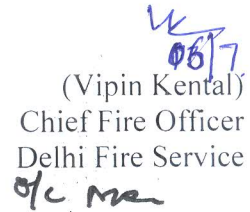 05/7
(Vipin Kental)
Chief Fire Officer
Delhi Fire Service
o/c